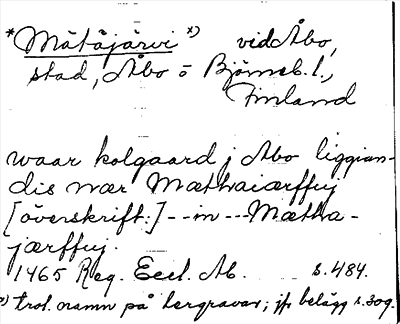 *Mätäjärvi x) vid Åbo,
stad, Åbo o Björneb. l.,
Finland
waar kolgaard j Abo liggian-
dis nær Mæthaiærffuj
[överskrift:] -- in --- Mætha-
jærffuj.
1465 Reg. Eccl. Ab. s. 484.
x) trol. namn på lergravar; jfr belägg s. 309.